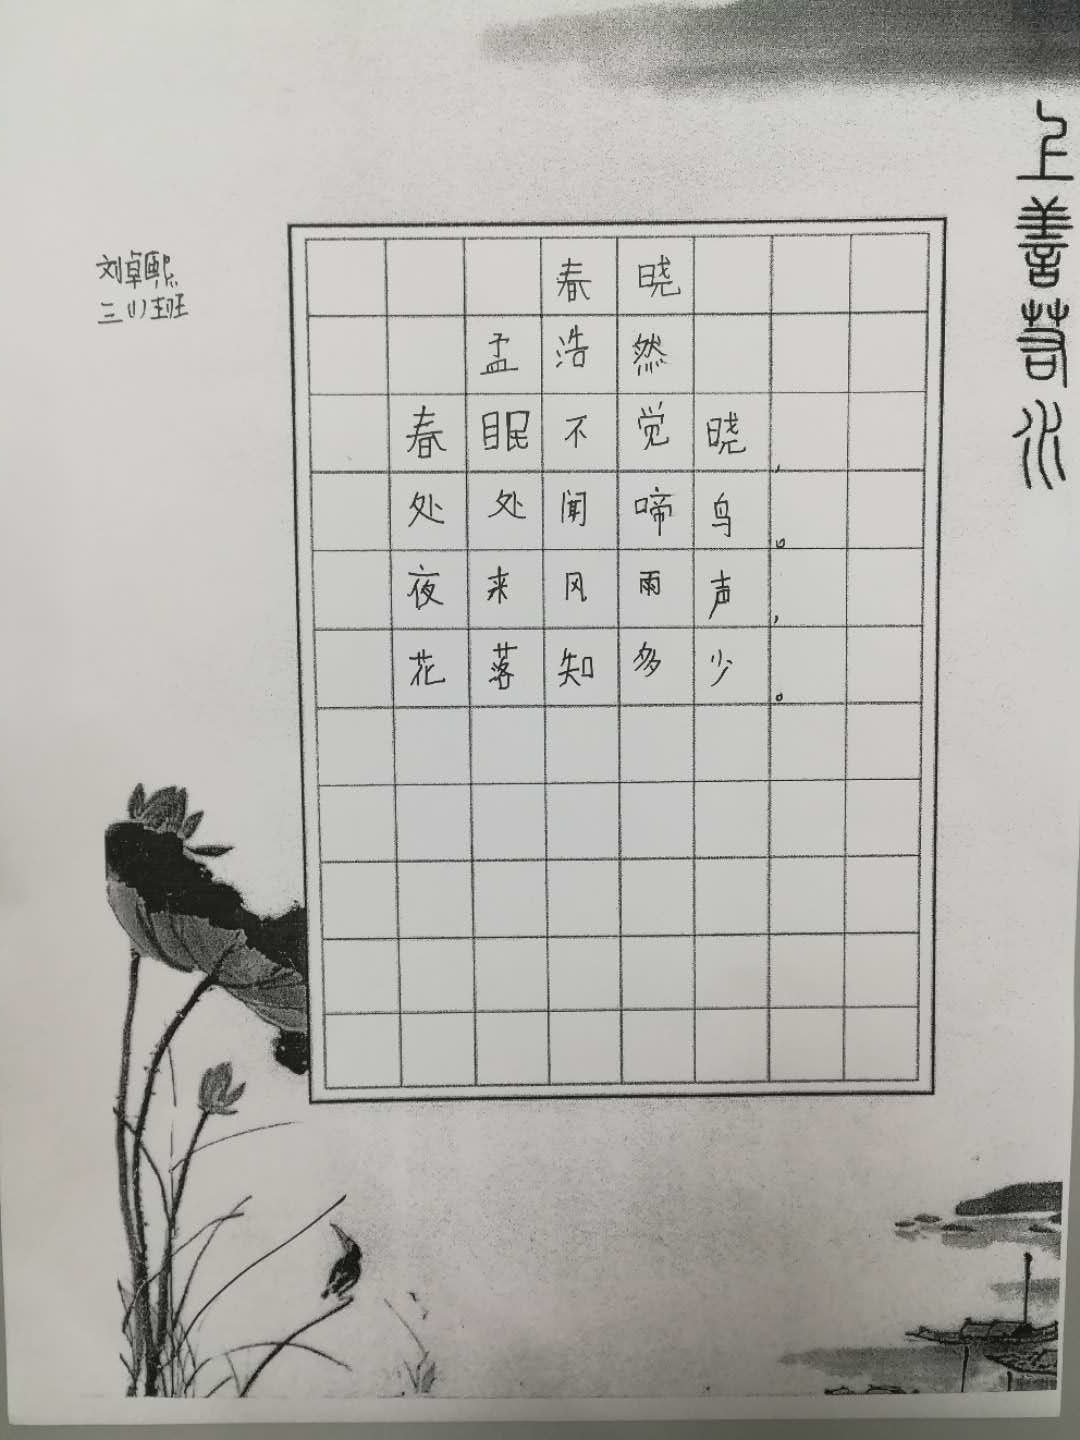 上善若水
刘卓熙
三(1)班
春晓
孟浩然
春眠不觉晓,
处处闻啼鸟。
夜来风雨声,
花落知多少。